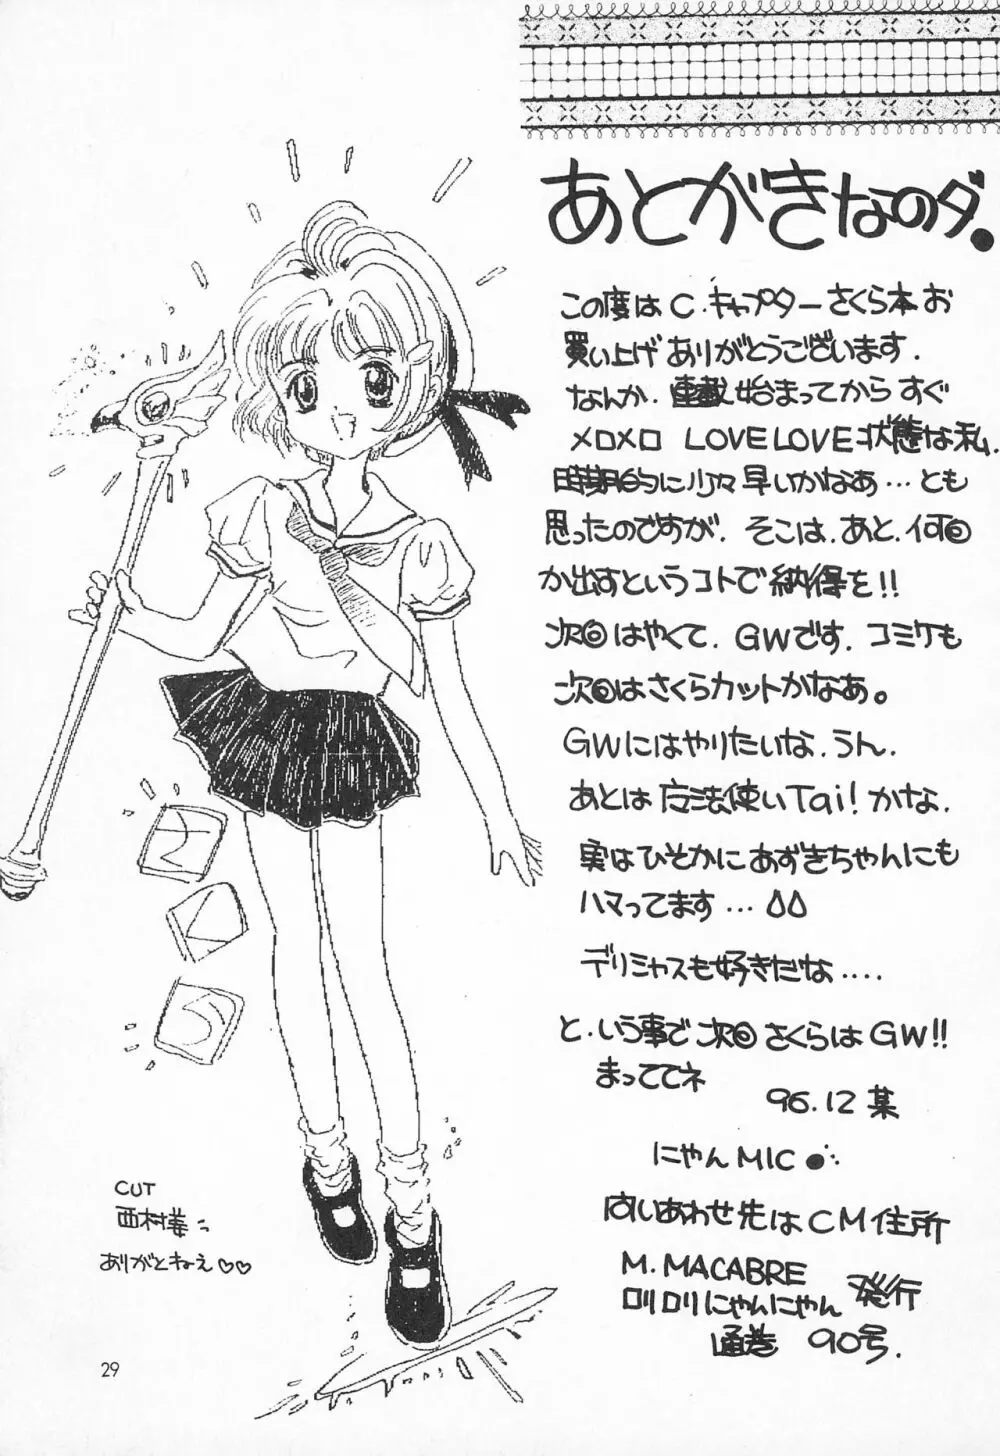 あとがきなのダ.
この度は C.キャプター さくら本 お
買い上げ ありがとうございます.
なんか. 連載始まってから すぐ
メロメロ LOVELOVE状態な私.
時期的に少々早いかなあ…とも
思ったのですが. そこは. あと. 何回
か出すというコトで納得を!!
次回はやくて. GWです. コミケも
次回はさくらカットかなあ。
GWにはやりたいな. うん.
あとは 魔法使いTai! かな.
実はひそかに あずきちゃんにも
ハマってます…
デリシャスも好きだな….
と.いう事で 次回 さくらは GW!!
まっててネ
96.12 某
にゃんMIC
問いあわせ先は CM住所
M.MACABRE
ロリロリにゃんにゃん 発行
通巻 90号.
CUT
西村
ありがとねえ♡♡
29